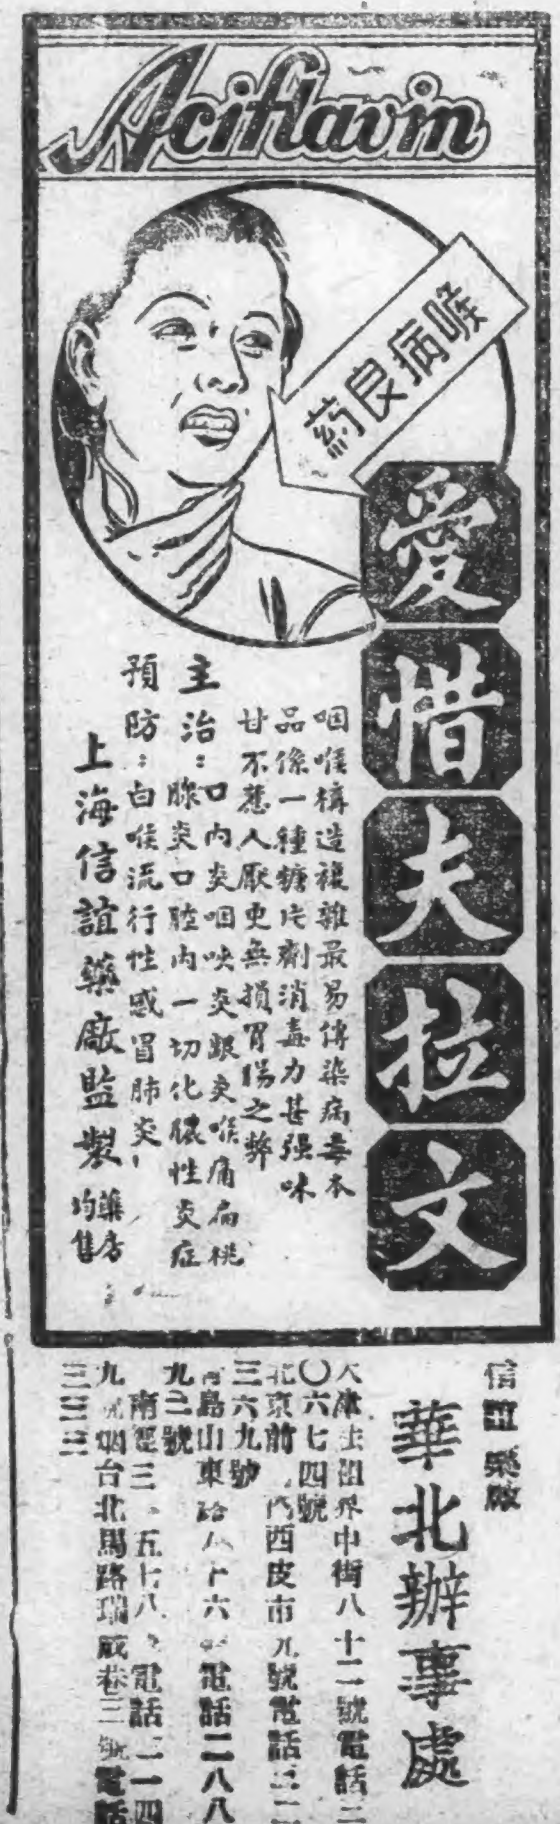 Aciflavin
喉病良药
愛惜夫拉文
咽喉構造複雜最易傳染病毒本
品係一種糖片劑消毒力甚强味
甘不惹人厭更無損胃腸之弊
主治：口内炎咽峽炎齦炎喉痛扁桃
腺炎口腔内一切化膿性炎症
預防：白喉流行性感冒肺炎
上海信誼藥廠監製
藥房
均售
信誼藥廠
華北辦事處
天津法租界中街八十二號電話三
〇六七四號
北京前門内西皮市九號電話三二
三六九號
青島山東路六十六號電話二八八
九二號
南五七八電話二一四
九號烟台北馬路瑞成巷三號電話
三三三